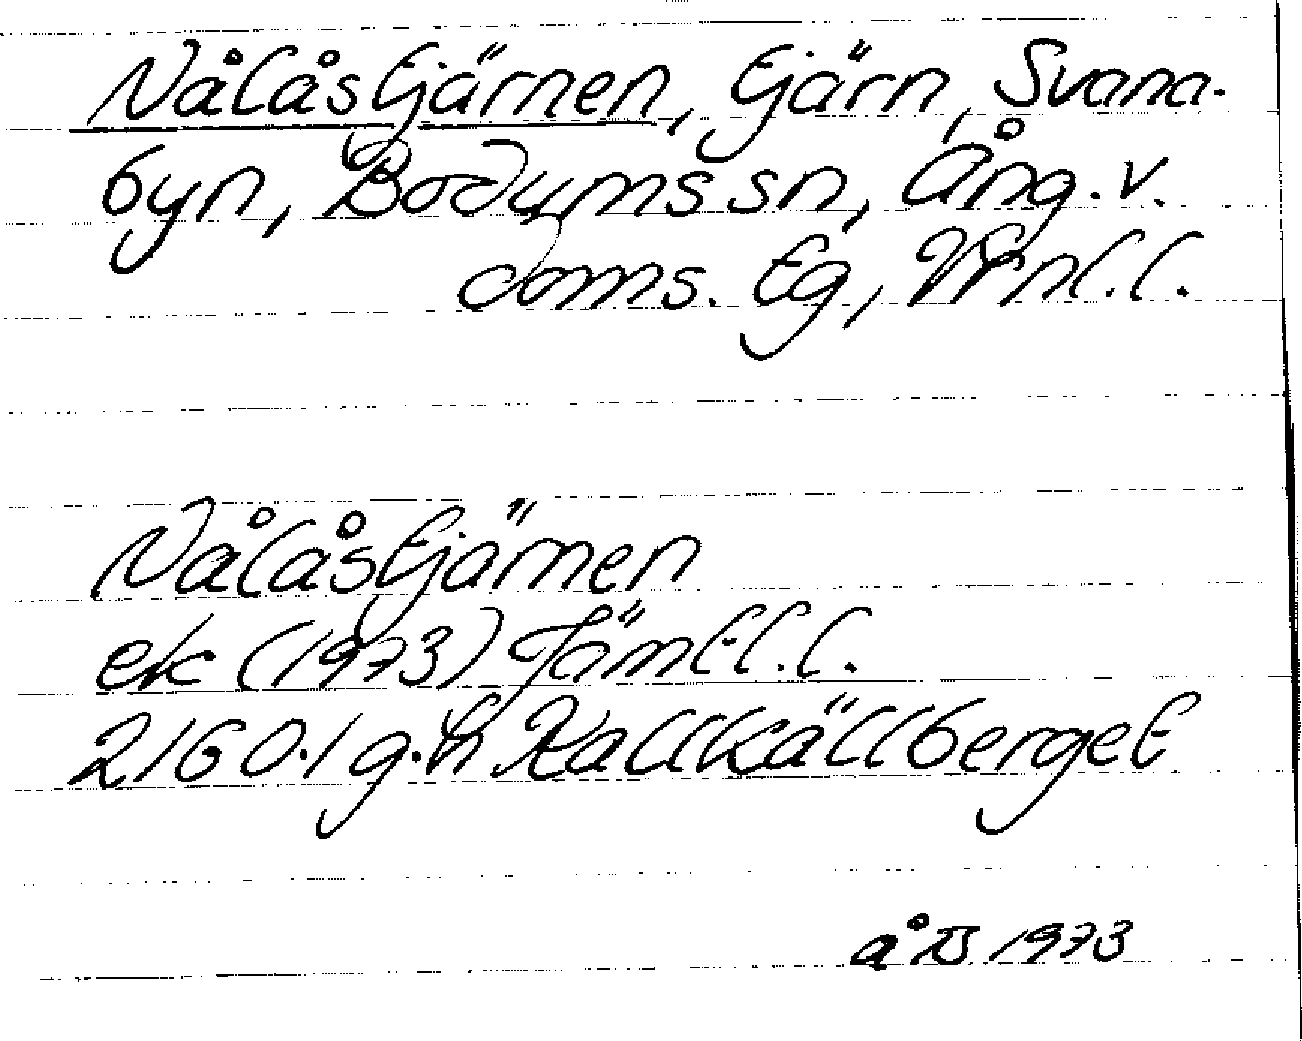 Nålåstjärnen, tjärn, Svana-
byn, Bodums sn, Ång. v.
doms. tg, Vrnl. l.
Nålåstjärnen
ek (1973) Jämtl. l.
2160.1 g.h Kallkällberget
åB 1973